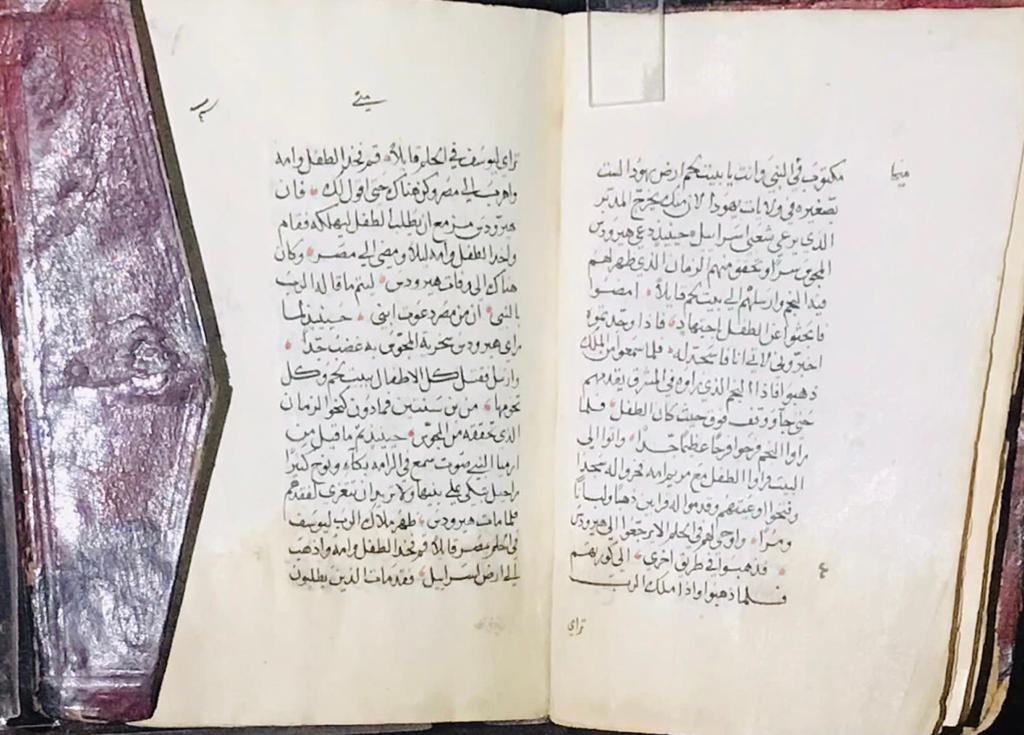 مكتوب في النبي وانت يا بيت لحم ارض يهودا لست
بصغيره في ولايات يهودا لان منك يخرج المدبر
الذي يرعى شعبي اسراييل حينيذ دعى هيرودس
المجوس سرًا وتحقق منهم الزمان الذي ظهر لهم
فيه النجم وارسلهم الى بيت لحم قايلاً امضوا
فابحثوا عن الطفل باجتهاد فاذا وجدتموه
اخبروني لاتي انا فاسجد له فلما سمعوا من الملك
ذهبوا فاذا النجم الذي راوه في المشرق يقدمهم
حتى جا ووقف فوق حيث كان الطفل فلما
راوا النجم فرحوا فرحًا عظيمًا جدًا واتوا الى
البيت فراوا الطفل مع مريم امه فخروا له سجدًا
وفتحوا اوعيتهم وقدموا له قرابين ذهبًا ولبانًا
ومرًا واوحي لهم في الحلم الا يرجعوا الى هيرودس
فذهبوا في طريق اخرى الى كورتهم
فلما ذهبوا واذا ملاك الرب
تراي
متى
تراي ليوسف في الحلم قايلاً قم فخذ الطفل وامه
واهرب الى مصر وكن هناك حتى اقول لك فان
هيرودس مزمع ان يطلب الطفل ليهلكه فقام
واخذ الطفل وامه ليلاً ومضى الى مصر وكان
هناك الى وفات هيرودس ليتم ما قاله الرب
بالنبي ان من مصر دعوت ابني حينيذ لما
راى هيرودس سخرية المجوس به غضب جدًا
وارسل فقتل كل الاطفال ببيت لحم وكل
تخومها من بن سنتين فما دون كنحو الزمان
الذي تحققه من المجوس حينيذ تم ما قيل من
ارميا النبي صوت سمع في الرامه بكاء ونوح كثيرًا
راحيل تبكي على بنيها ولا تريد ان تتعزى لفقدهم
فلما مات هيرودس ظهر ملاك الرب ليوسف
في الحلم بمصر قايلاً قم فخذ الطفل وامه واذهب
الى ارض اسراييل فقد مات الذين يطلبون